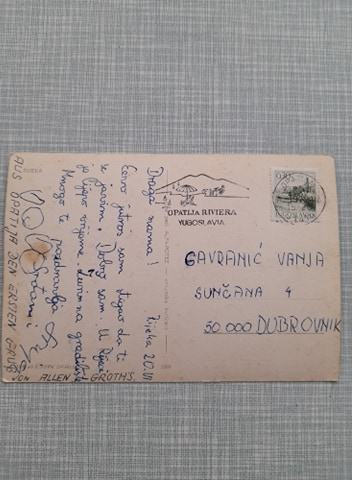 Rijeka 20.VI
Draga mama!
Evo jutros sam stigao da ti
se javim. Dobro sam. U Rijeci
je lijepo vrijeme
Mnogo te pozdravlja
AUS OPATIJA DEN ERSTEN GRUß
VON ALLEN GROTHS.
OPATIJA RIVIERA
YUGOSLAVIA
0.80
JUGOSLAVIJA
GAVRANIĆ VANJA
SUNČANA 4
50 000 DUBROVNIK